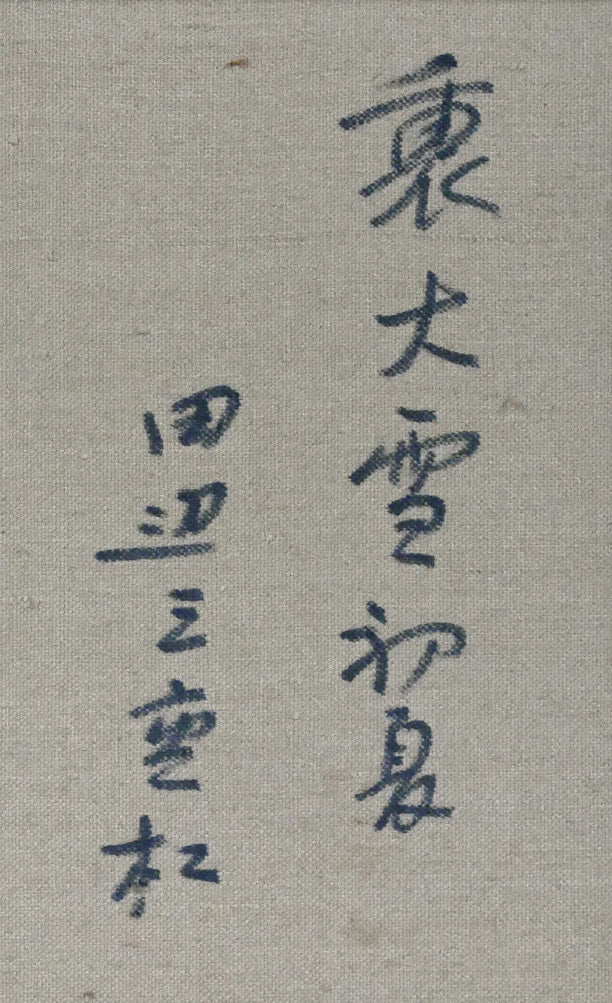 裏大雪初夏
田辺三重松